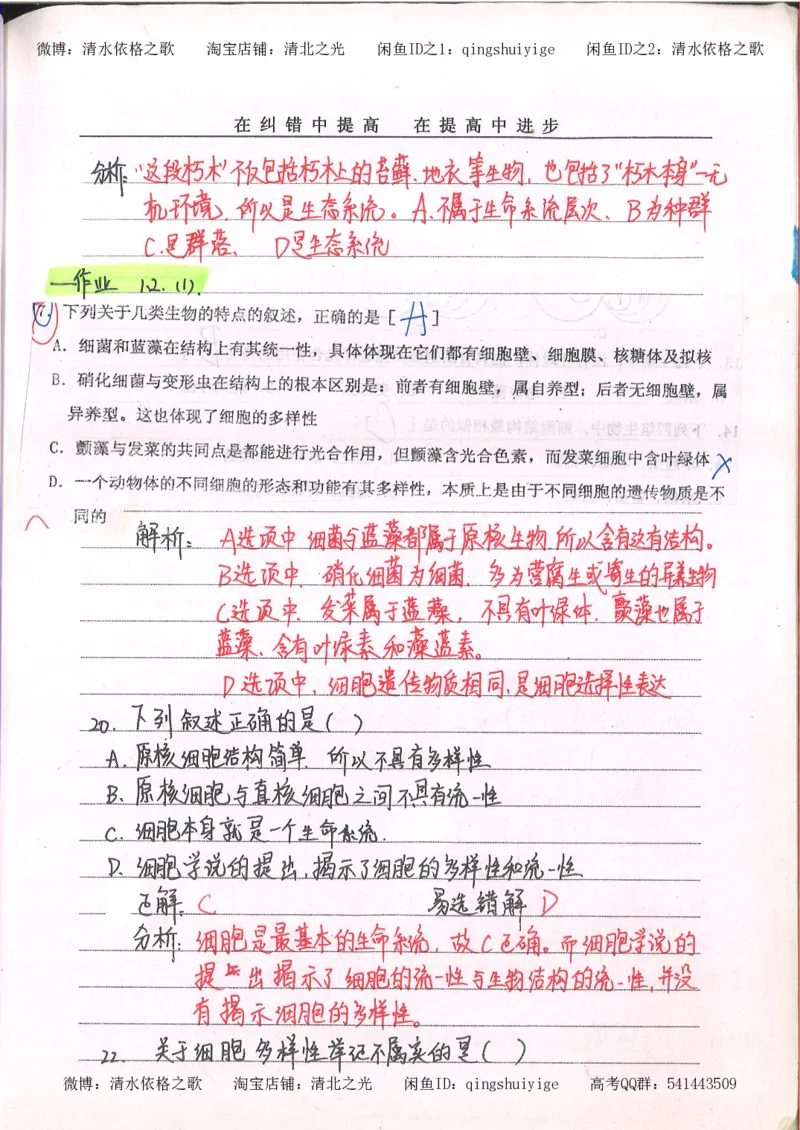 微博：清水依格之歌 淘宝店铺：清北之光 闲鱼ID之1：qingshuiyige 闲鱼ID之2：清水依格之歌
在纠错中提高 在提高中进步
分析："这段朽木"不仅包括朽木上的苔藓、地衣等生物，也包括了"朽木本身"—无
机环境，所以是生态系统。A.不属于生命系统层次、B为种群
C.是群落、 D是生态系统
—作业 1.2.(1).
7. 下列关于几类生物的特点的叙述，正确的是 [ A ]
A. 细菌和蓝藻在结构上有其统一性，具体体现在它们都有细胞壁、细胞膜、核糖体及拟核
B. 硝化细菌与变形虫在结构上的根本区别是：前者有细胞壁，属自养型；后者无细胞壁，属
异养型。这也体现了细胞的多样性
C. 颤藻与发菜的共同点是都能进行光合作用，但颤藻含光合色素，而发菜细胞中含叶绿体 ×
D. 一个动物体的不同细胞的形态和功能有其多样性，本质上是由于不同细胞的遗传物质是不
同的
解析： A选项中 细菌与蓝藻都属于原核生物 所以含有这有结构。
B选项中. 硝化细菌为细菌. 多为营腐生或寄生的异养生物
C选项中. 发菜属于蓝藻， 不具有叶绿体. 颤藻也属于
蓝藻、含有叶绿素和藻蓝素。
D选项中，细胞遗传物质相同，是细胞选择性表达
20. 下列叙述正确的是( )
A. 原核细胞结构简单. 所以不具有多样性
B. 原核细胞与真核细胞之间不具有统一性
C. 细胞本身就是一个生命系统.
D. 细胞学说的提出，揭示了细胞的多样性和统一性
正解：C 易选错解 D
分析：细胞是最基本的生命系统，故C正确。而细胞学说的
提出揭示了细胞的统一性与生物结构的统一性，并没
有揭示细胞的多样性。
22. 关于细胞多样性举记不属实的是( )
微博：清水依格之歌 淘宝店铺：清北之光 闲鱼ID：qingshuiyige 高考QQ群：541443509